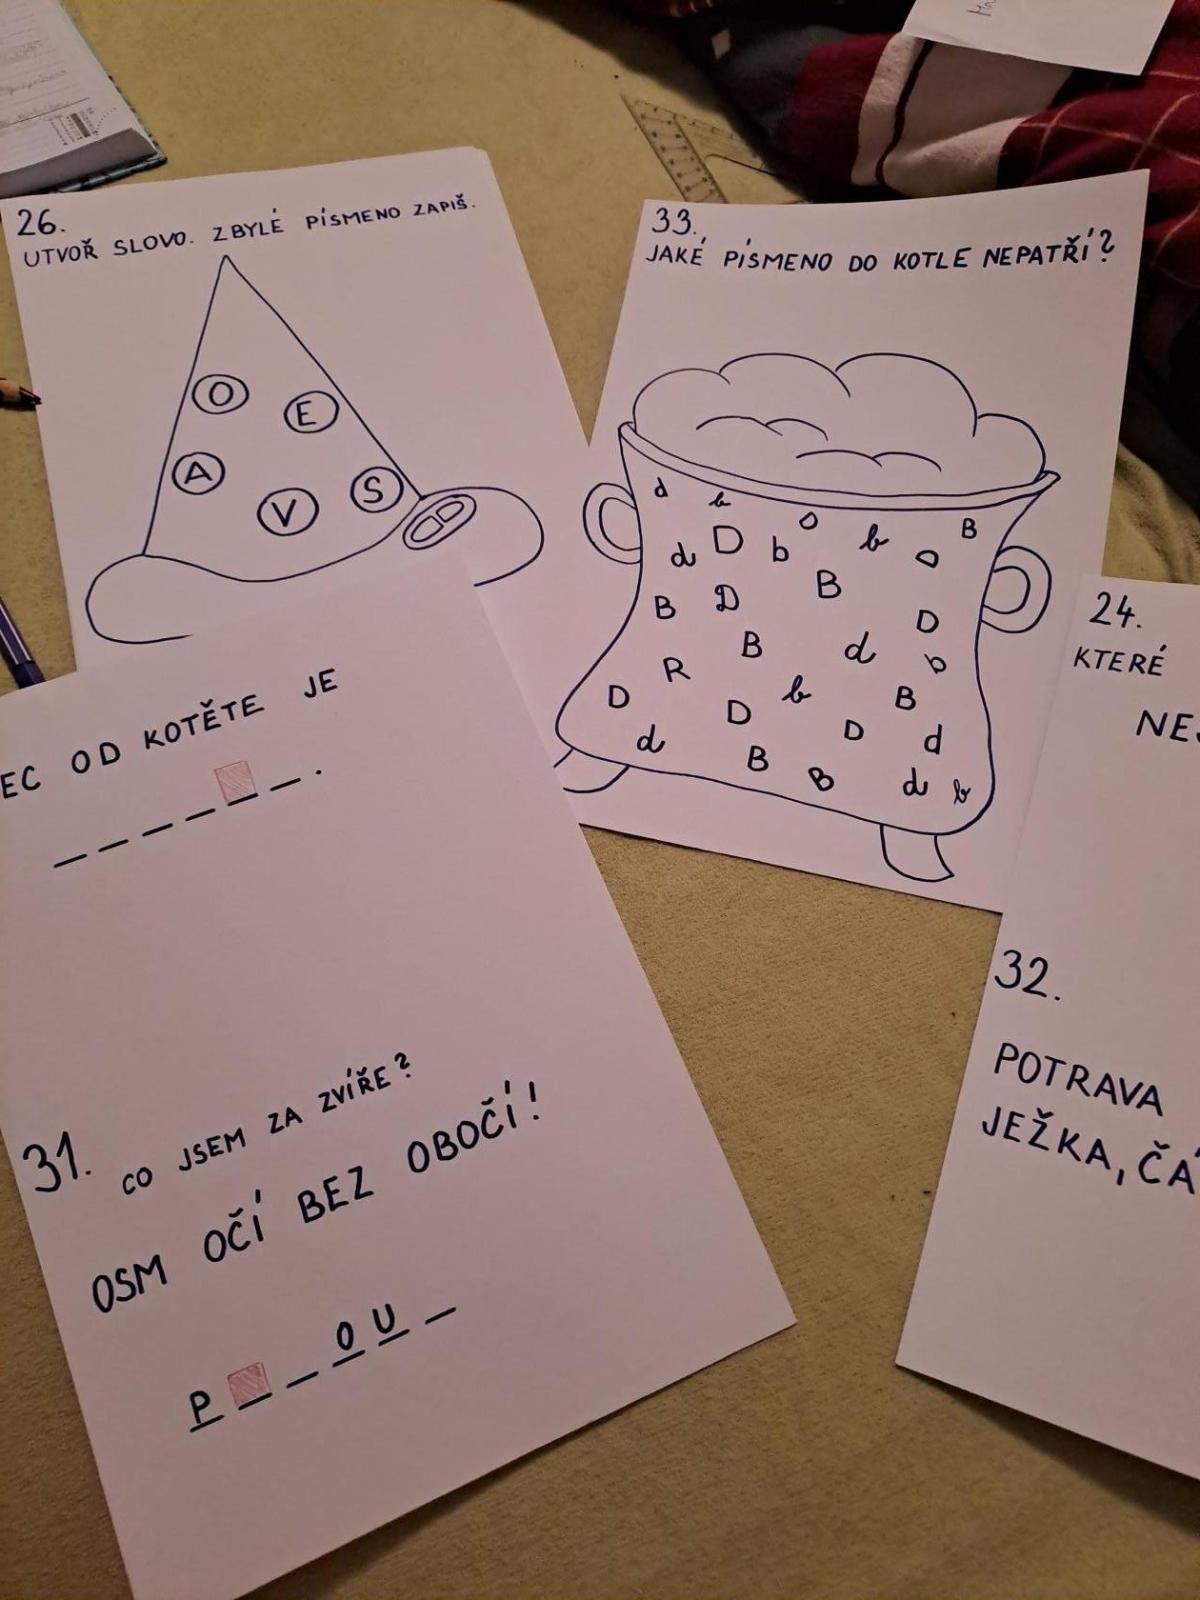 26.
UTVOŘ SLOVO. ZBYLÉ PÍSMENO ZAPIŠ.
O E
A V S
33.
JAKÉ PÍSMENO DO KOTLE NEPATŘÍ?
d b
D b O b B
d D
B D B D
B d b
R b B
D D D d
d B B d b
EC OD KOTĚTE JE
_ _ _ _ _ _ .
31. CO JSEM ZA ZVÍŘE?
OSM OČÍ BEZ OBOČÍ!
P _ _ O U _
24.
KTERÉ
NEJ
32.
POTRAVA
JEŽKA, ČÁ